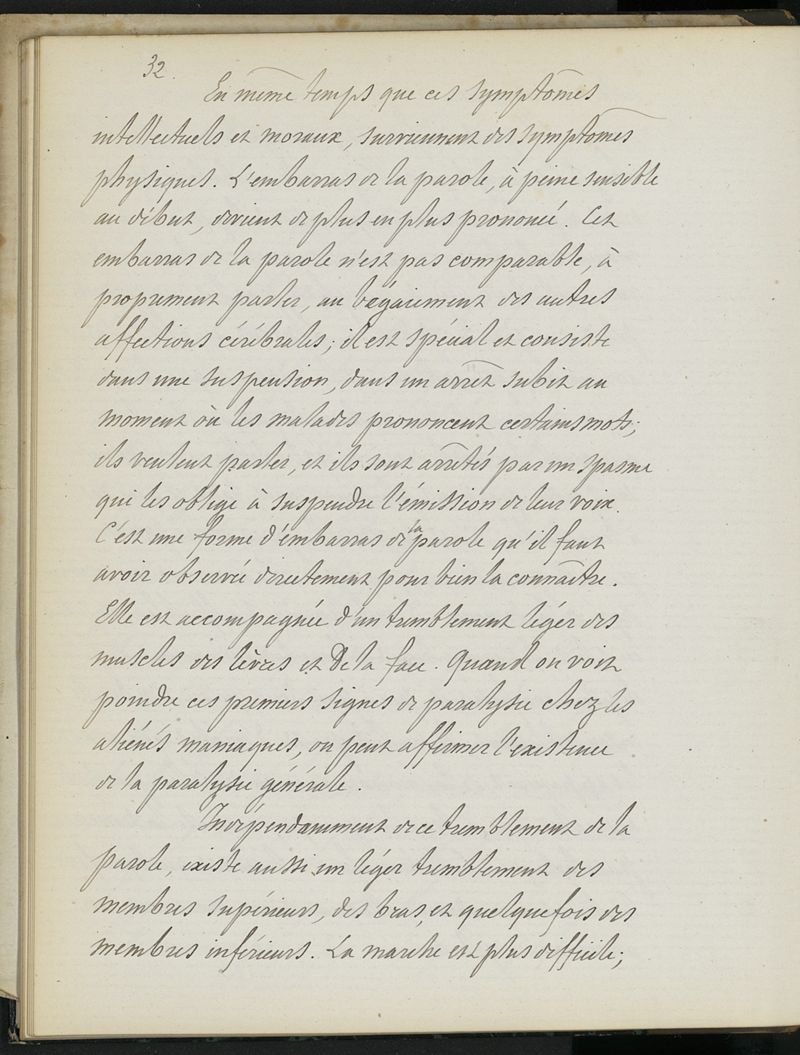 32.
En même temps que ces symptômes
intellectuels et moraux, surviennent des symptômes
physiques. L'embarras de la parole, à peine sensible
au début, devient de plus en plus prononcé. Cet
embarras de la parole n'est pas comparable, à
proprement parler, au bégaiement des autres
affections cérébrales; il est spécial et consiste
dans une suspension, dans un arrêt subit au
moment où les malades prononcent certains mots;
ils veulent parler, et ils sont arrêtés par un spasme
qui les oblige à suspendre l'émission de leur voix.
C'est une forme d'embarras de la parole qu'il faut
avoir observée directement pour bien la connaître.
Elle est accompagnée d'un tremblement léger des
muscles des lèvres et De la face. Quand on voit
poindre ces premiers signes de paralysie chez les
aliénés maniaques, on peut affirmer l'existence
de la paralysie générale.
Indépendamment de ce tremblement de la
parole, existe aussi un léger tremblement des
membres supérieurs, des bras, et quelquefois des
membres inférieurs. La marche est plus difficile;